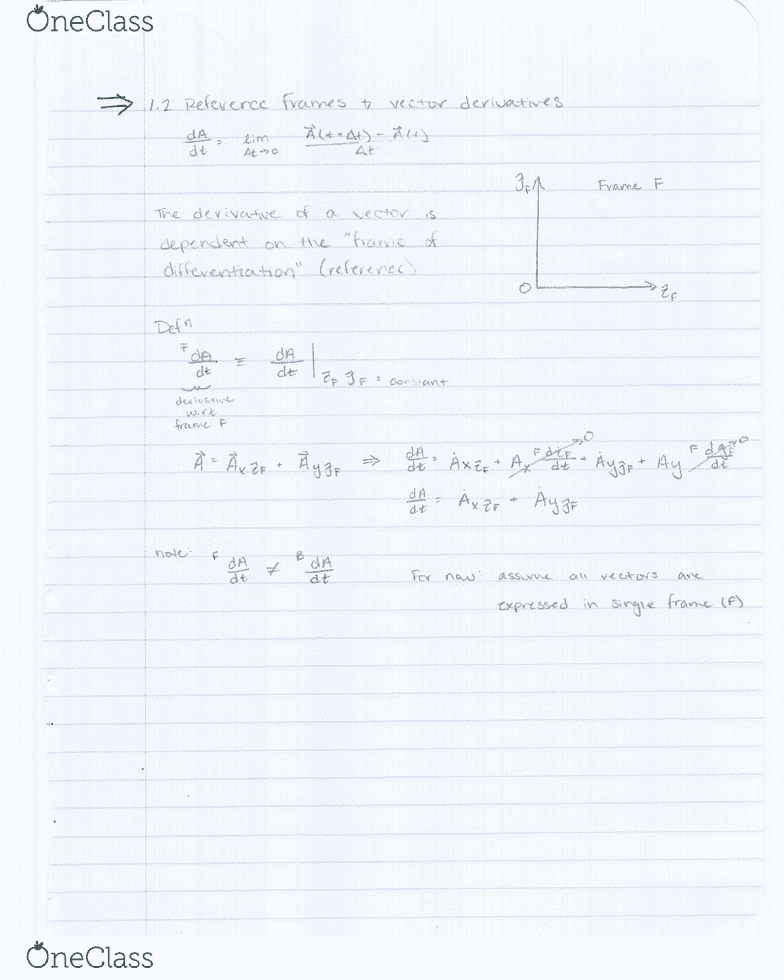 OneClass
⇒ 1.2 Reference frames & vector derivatives
dA/dt = lim Δt→0 (A⃗(t+Δt) - A⃗(t))/Δt
ȷF Frame F
The derivative of a vector is
dependent on the "frame of
differentiation" (reference)
O ıF
Defn
F dA/dt ≡ dA/dt | ıF ȷF = constant
derivative
w.r.t
frame F
A⃗ = A⃗x ıF + A⃗y ȷF ⇒ dA/dt = Ȧx ıF + Ax F dıF/dt →0 + Ȧy ȷF + Ay F dȷF/dt →0
dA/dt = Ȧx ıF + Ȧy ȷF
note: F dA/dt ≠ B dA/dt
For now: assume all vectors are
expressed in single frame (F)
OneClass